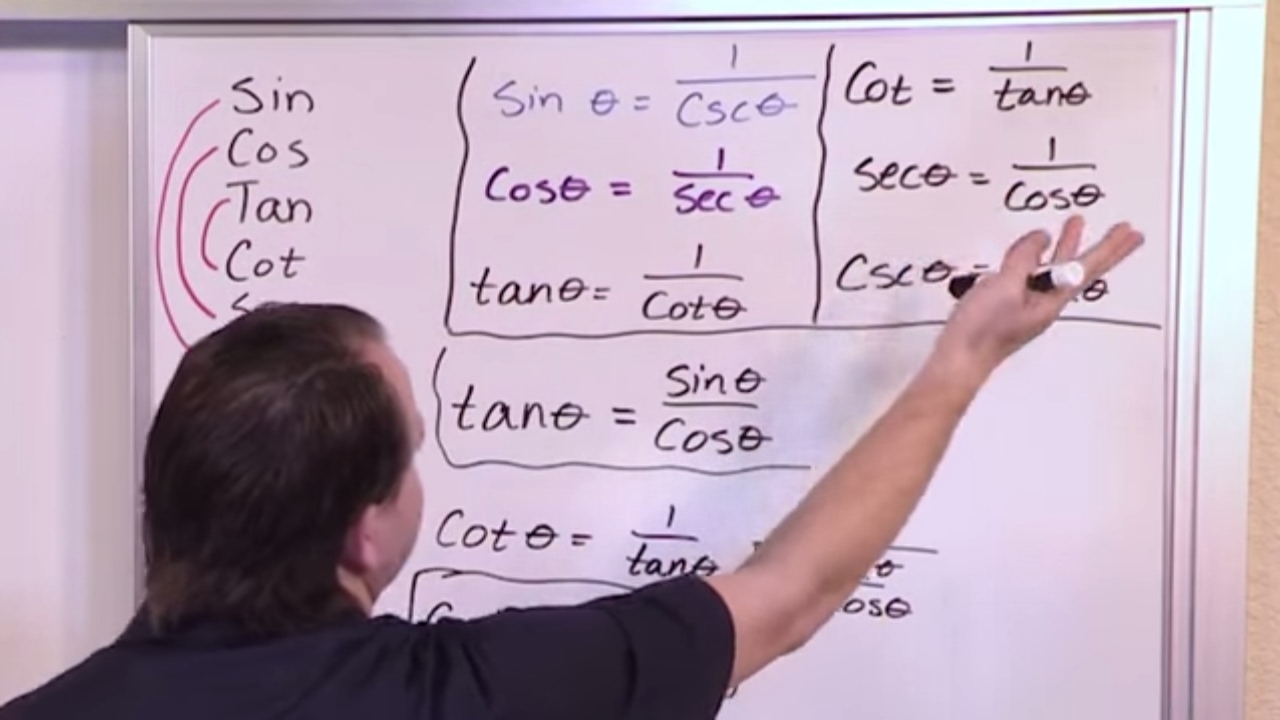 Sin
Cos
Tan
Cot
Sin θ = 1/Cscθ
Cosθ = 1/Sec θ
tanθ = 1/Cotθ
Cot = 1/tanθ
Secθ = 1/Cosθ
Cscθ =
tanθ = Sinθ/Cosθ
Cot θ = 1/tanθ =